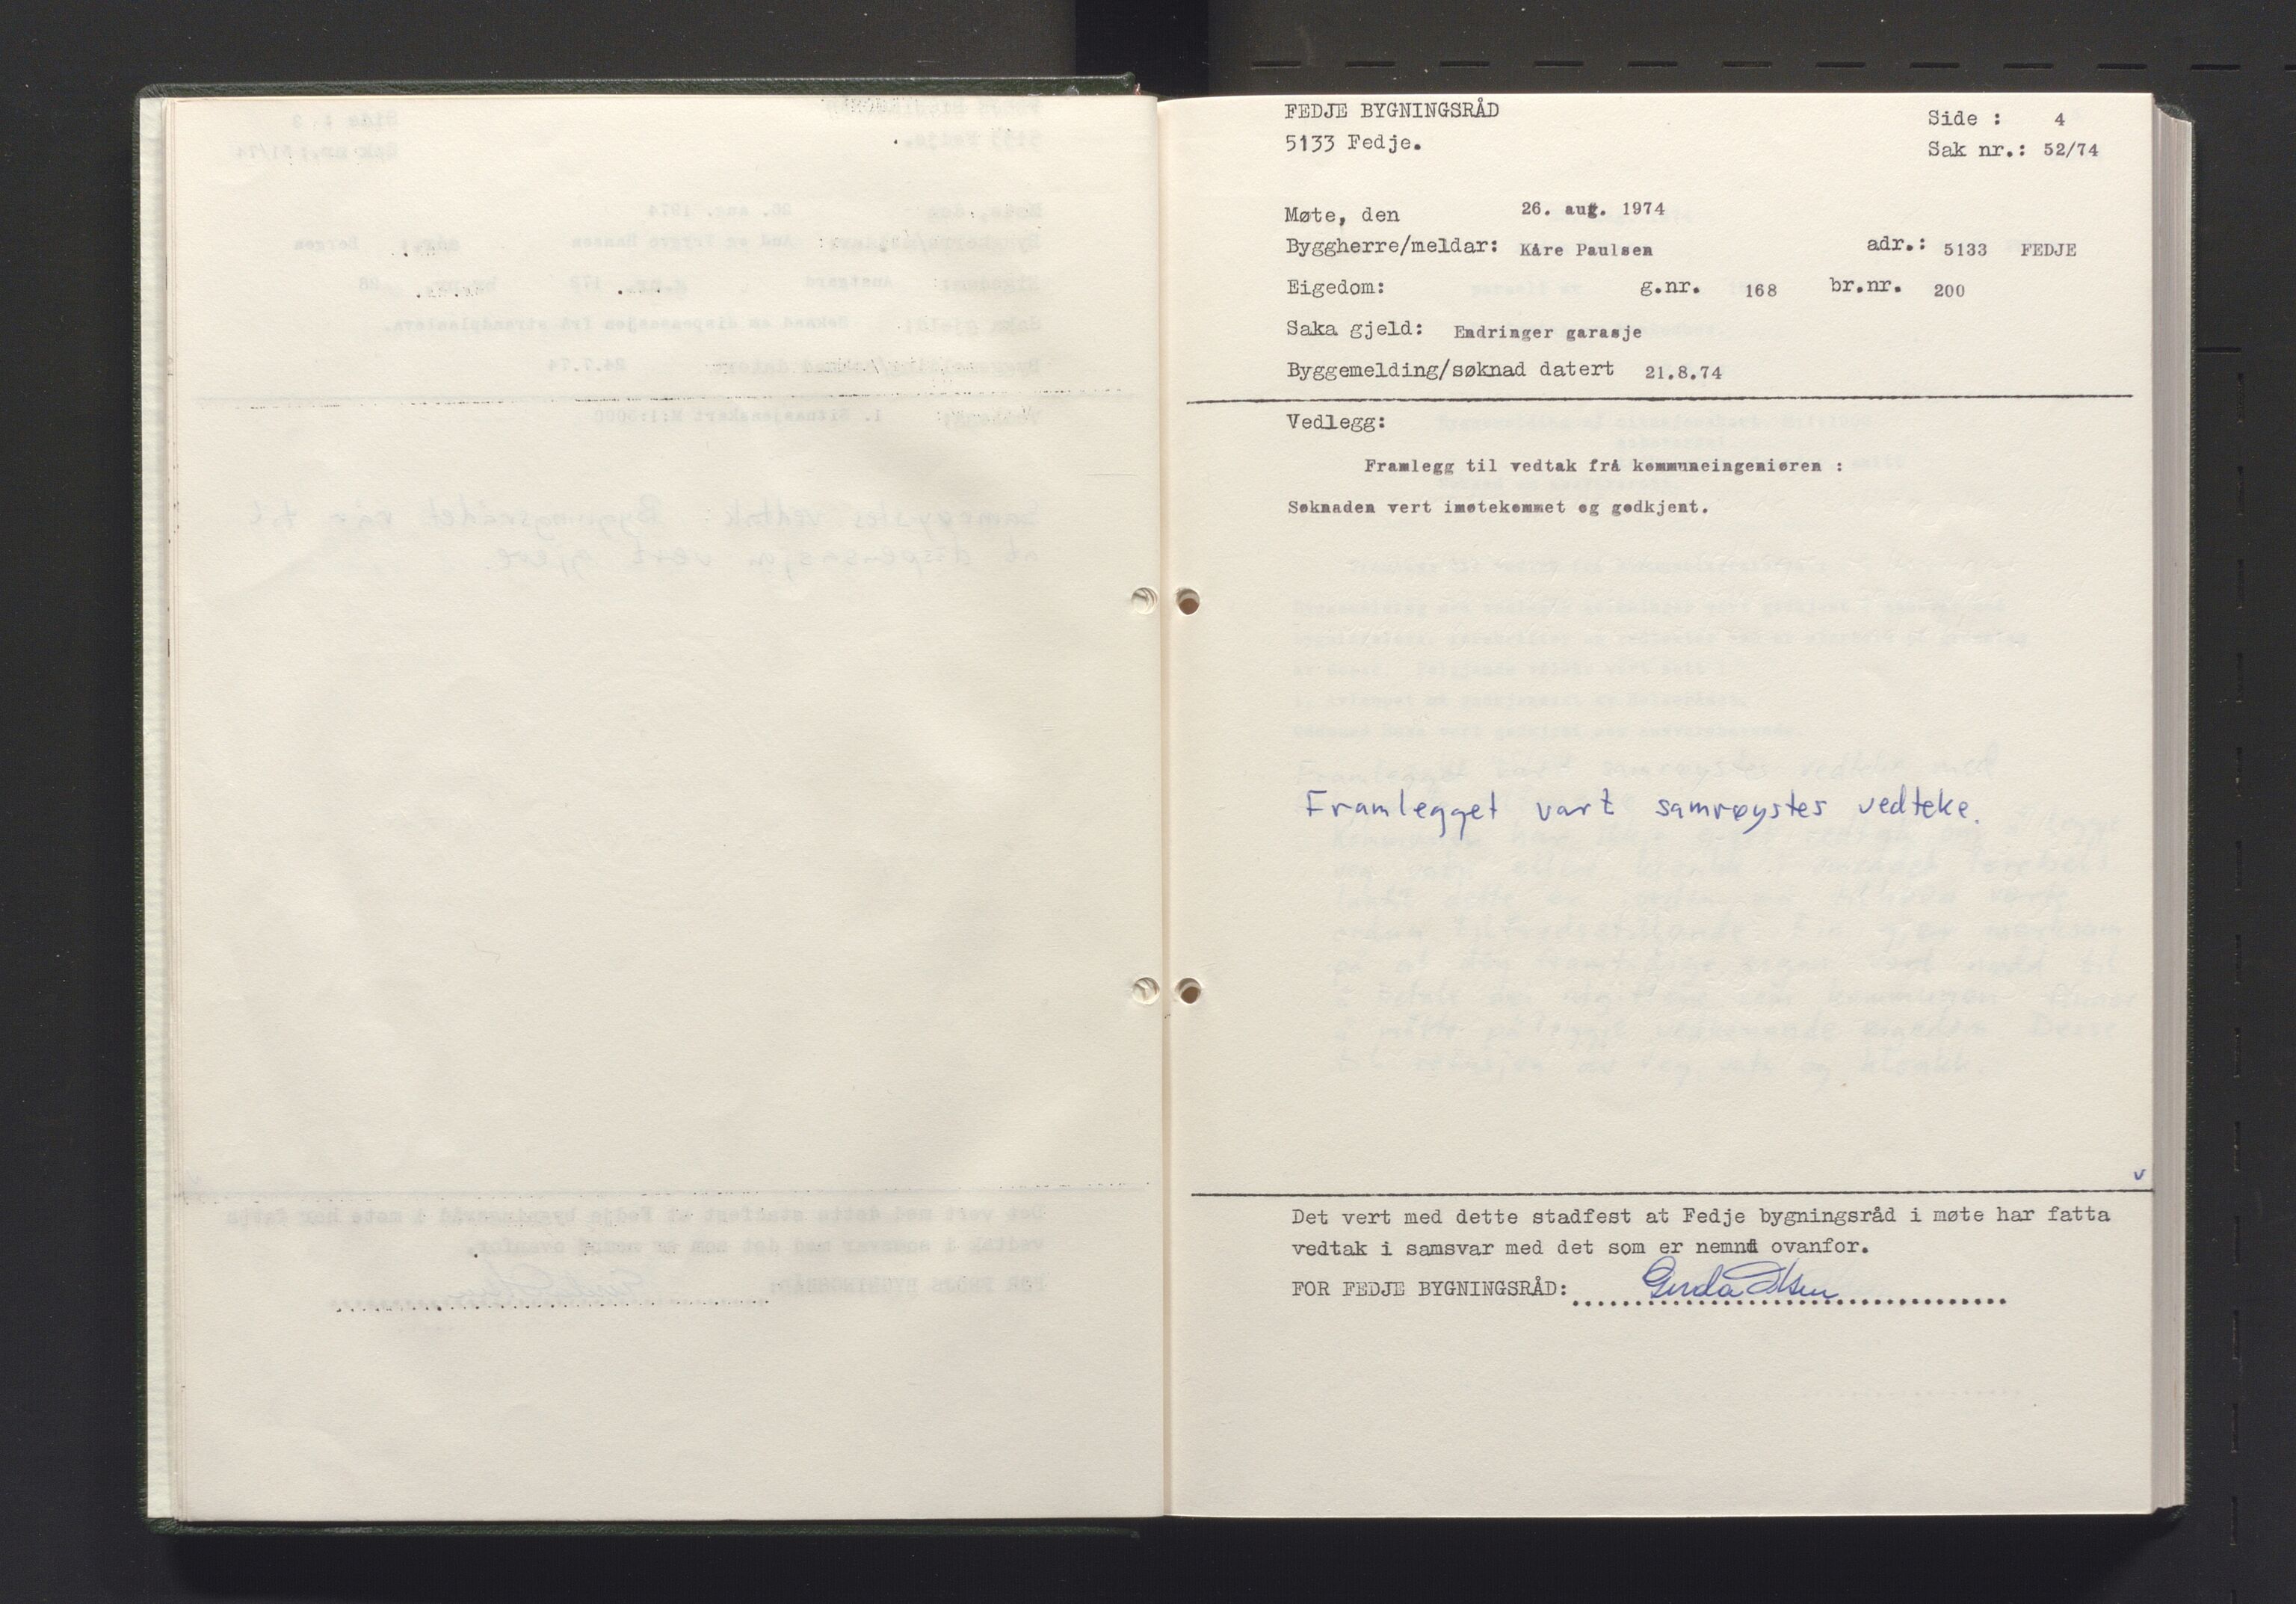 FEDJE BYGNINGSRÅD
5133 Fedje.
Side : 4
Sak nr.: 52/74
Møte, den 26. aug. 1974
Byggherre/meldar: Kåre Paulsen adr.: 5133 FEDJE
Eigedom: g.nr. 168 br.nr. 200
Saka gjeld: Endringer garasje
Byggemelding/søknad datert 21.8.74
Vedlegg:
Framlegg til vedtak frå kommuneingeniøren :
Søknaden vert imøtekommet og godkjent.
Framlegget vart samrøystes vedteke.
Det vert med dette stadfest at Fedje bygningsråd i møte har fatta
vedtak i samsvar med det som er nemnt ovanfor.
FOR FEDJE BYGNINGSRÅD: Gerda